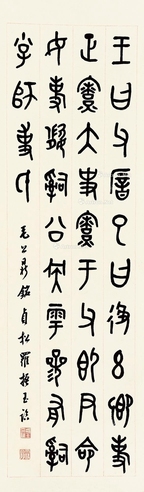 王曰父厝巳曰彶兹卿事
寮大史寮于父即尹命
女司公族雩參有司
小子師
毛公鼎銘 貞松羅振玉臨